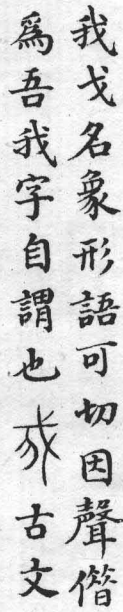 我戈名象形語可切因聲借
爲吾我字自謂也𢦠古文